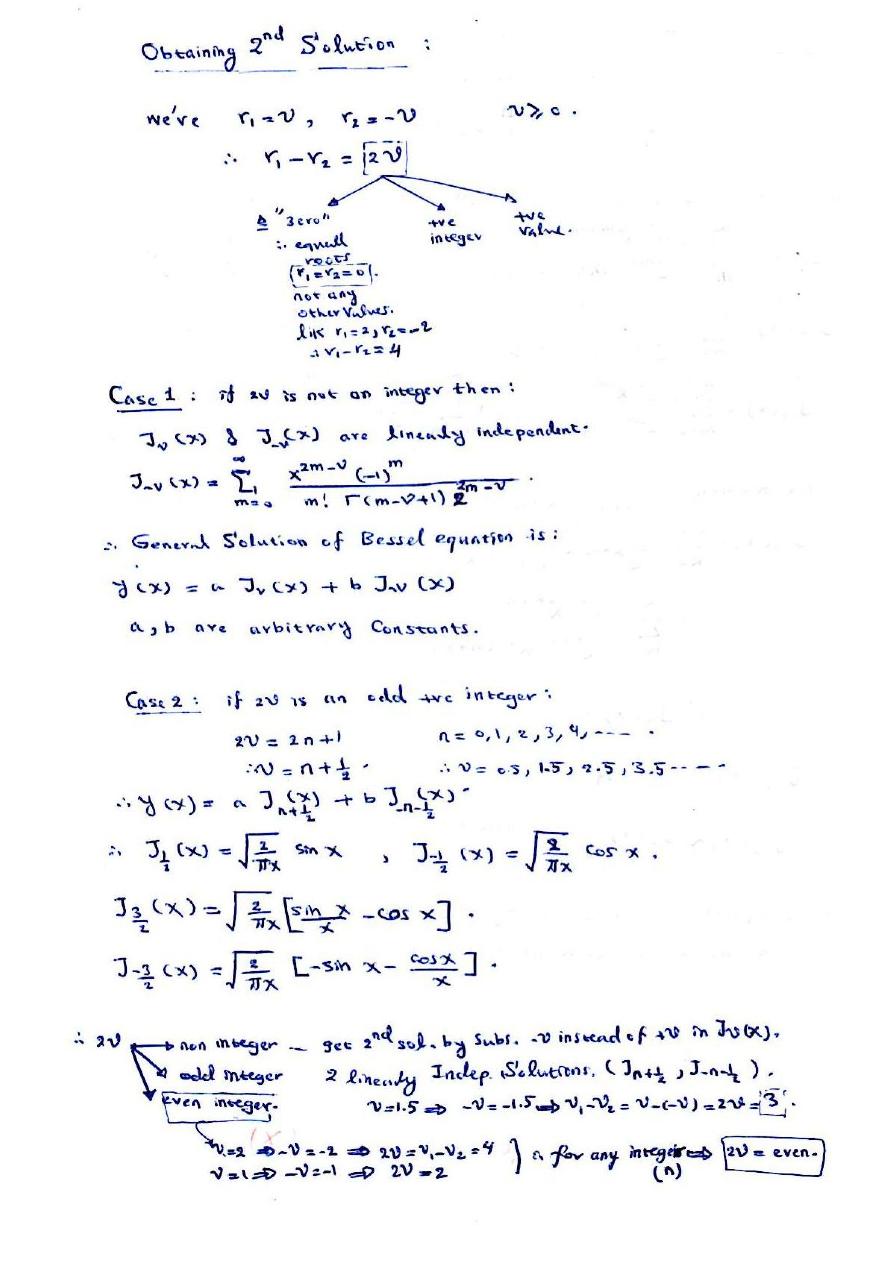 Obtaining 2nd Solution :
we've r₁ = ν , r₂ = -ν ν ≥ 0 .
∴ r₁ - r₂ = 2ν
"zero" +ve integer +ve value.
∴ equall
roots
(r₁ = r₂ = 0).
not any
other Values.
like r₁ = 2, r₂ = -2
∴ r₁ - r₂ = 4
Case 1 : if 2ν is not an integer then :
J_ν (x) & J_-ν (x) are linearly independent.
J_-ν (x) = Σ_{m=0}^{∞} x^{2m-ν} (-1)^m / m! Γ(m-ν+1) 2^{2m-ν} .
∴ General Solution of Bessel equation is :
y(x) = a J_ν (x) + b J_-ν (x)
a , b are arbitrary Constants.
Case 2 : if 2ν is an odd +ve integer :
2ν = 2n+1 n = 0, 1, 2, 3, 4, ---- .
∴ ν = n + 1/2 . ∴ ν = 0.5, 1.5, 2.5, 3.5 -----
∴ y(x) = a J_{n+1/2} (x) + b J_{-n-1/2} (x) .
∴ J_{1/2} (x) = √(2/πx) sin x , J_{-1/2} (x) = √(2/πx) cos x .
J_{3/2} (x) = √(2/πx) [sin x / x - cos x] .
J_{-3/2} (x) = √(2/πx) [-sin x - cos x / x] .
∴ 2ν → non integer — get 2nd sol. by subs. -ν instead of +ν in J_ν(x).
odd integer 2 linearly Indep. Solutions. (J_{n+1/2} , J_{-n-1/2}) .
even integer. ν = 1.5 ⇒ -ν = -1.5 ⇒ ν₁ - ν₂ = ν - (-ν) = 2ν = 3 .
ν = 2 ⇒ -ν = -2 ⇒ 2ν = ν₁ - ν₂ = 4 } for any integer ⇒ 2ν = even.
ν = 1 ⇒ -ν = -1 ⇒ 2ν = 2 (n)